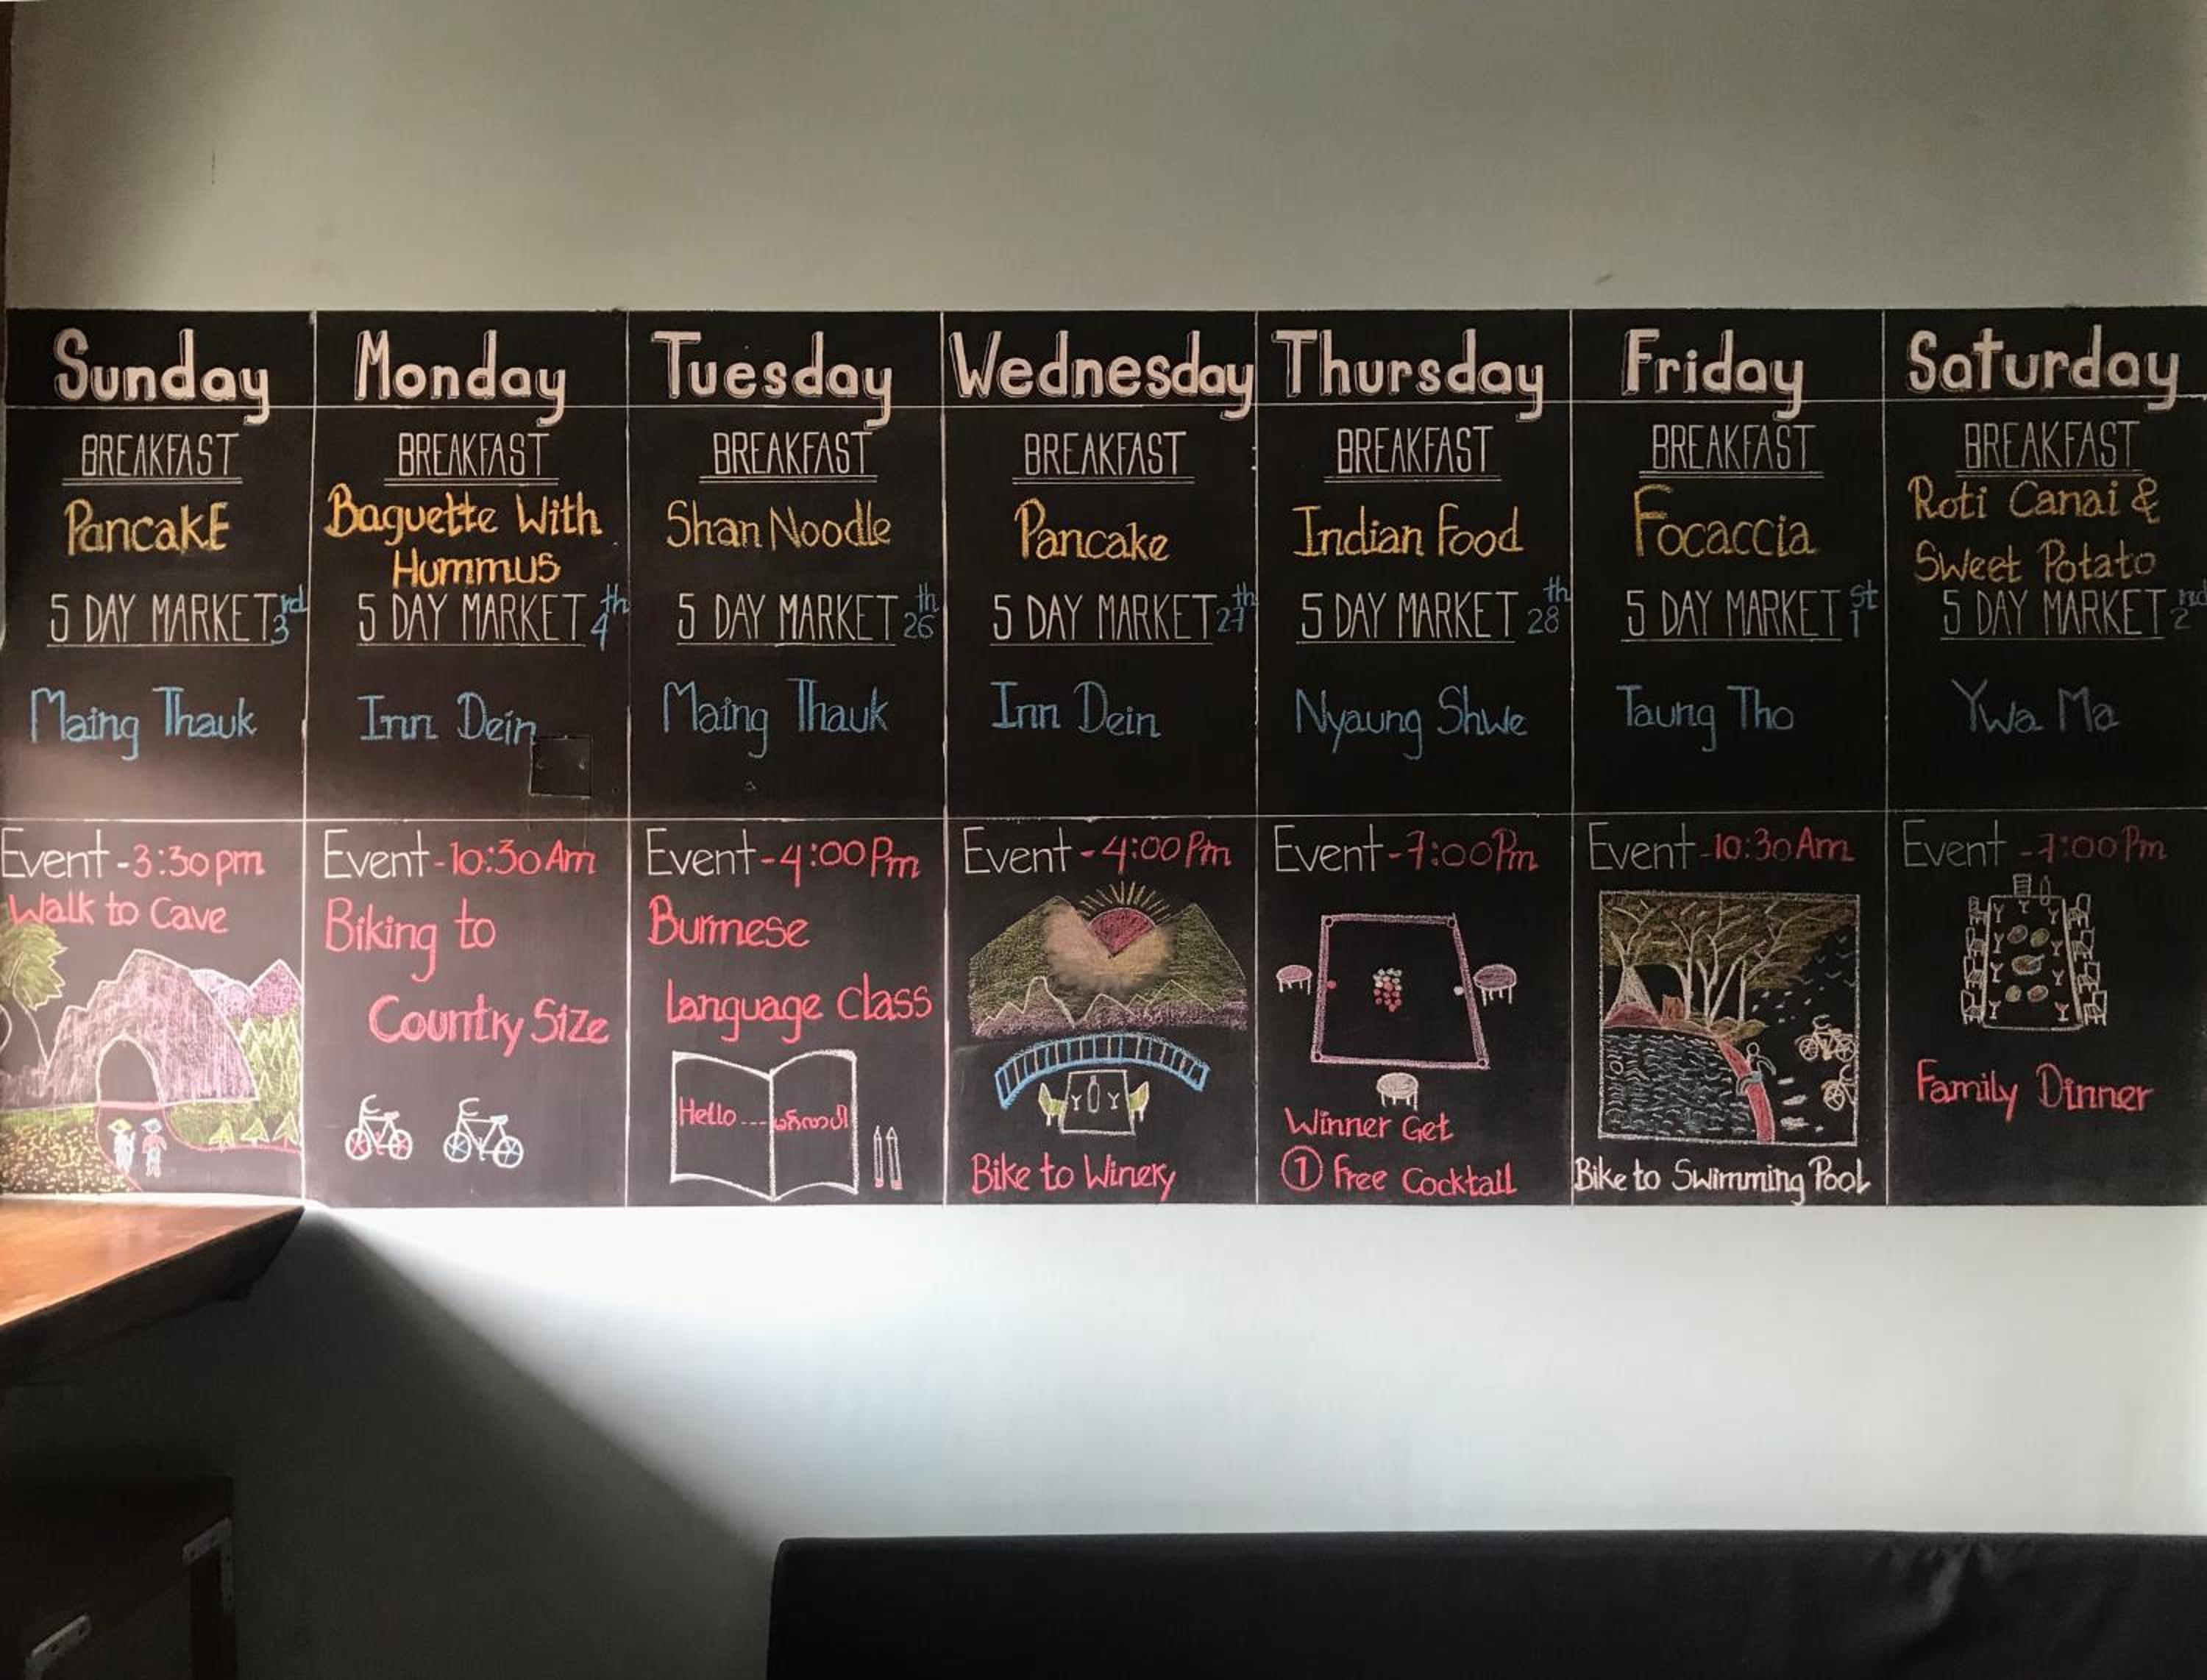 Sunday
BREAKFAST
Pancake
5 DAY MARKET 3rd
Maing Thauk
Event - 3:30 pm
Walk to Cave
Monday
BREAKFAST
Baguette With
Hummus
5 DAY MARKET 4th
Inn Dein
Event - 10:30 Am
Biking to
Country Size
Tuesday
BREAKFAST
Shan Noodle
5 DAY MARKET 26th
Maing Thauk
Event - 4:00 Pm
Burmese
Language Class
Hello...
Wednesday
BREAKFAST
Pancake
5 DAY MARKET 27th
Inn Dein
Event - 4:00 Pm
Bike to Winery
Thursday
BREAKFAST
Indian Food
5 DAY MARKET 28th
Nyaung Shwe
Event - 7:00 Pm
Winner Get
1 Free Cocktail
Friday
BREAKFAST
Focaccia
5 DAY MARKET 1st
Taung Tho
Event - 10:30 Am
Bike to Swimming Pool
Saturday
BREAKFAST
Roti Canai &
Sweet Potato
5 DAY MARKET 2nd
Ywa Ma
Event - 7:00 Pm
Family Dinner